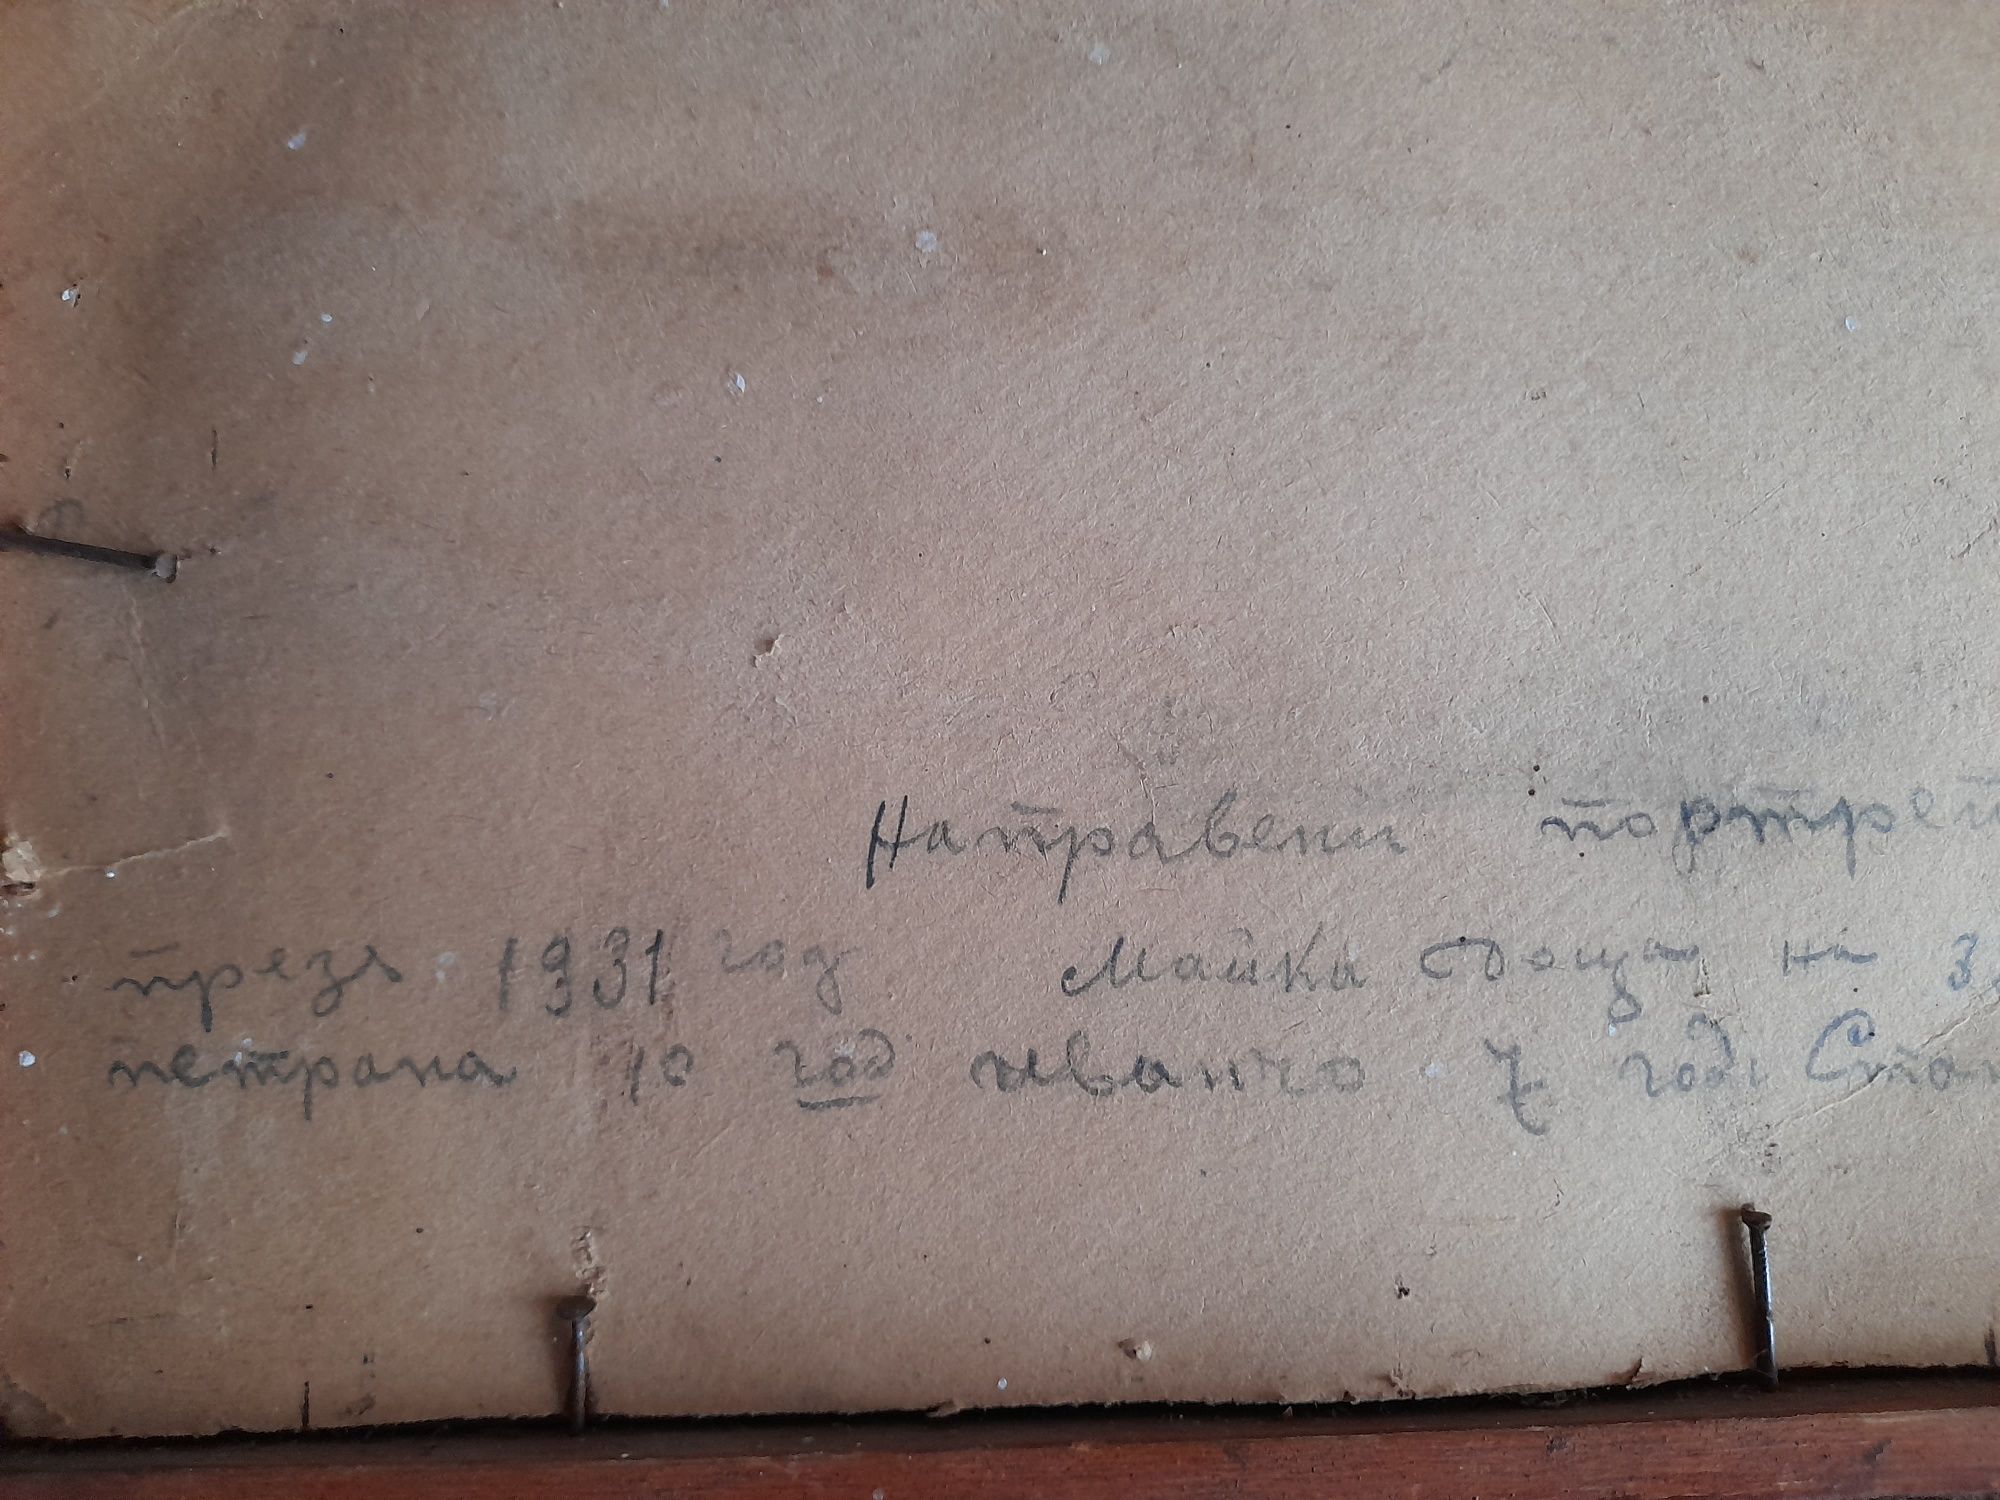 Направени портрет
презъ 1931 год Майка Доща на 3
петрана 10 год иванчо 7 год. Стан